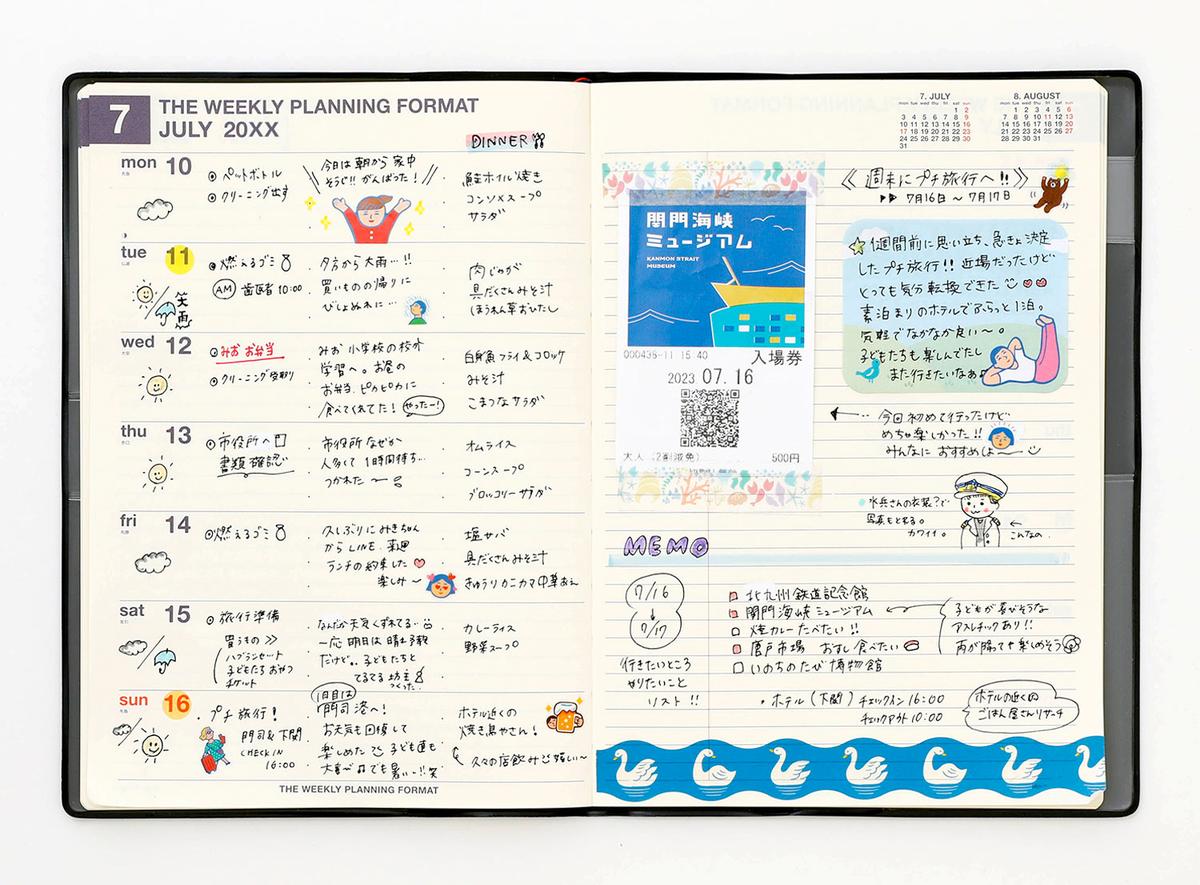 7
THE WEEKLY PLANNING FORMAT
JULY 20XX
DINNER
mon 10
ペットボトル
クリーニング出す
今日は朝から家中
そうじ!! がんばった!
鮭ホイル焼き
コンソメスープ
サラダ
tue 11
笑雨
燃えるゴミ
AM 歯医者 10:00
夕方から大雨…!!
買いものの帰りに
びしょぬれに…
肉じゃが
具だくさんみそ汁
ほうれん草おひたし
wed 12
みお お弁当
クリーニング受取り
みお 小学校の校外
学習へ。お昼の
お弁当、ピカピカに
食べてくれてた! やったー!
白身魚フライ&コロッケ
みそ汁
こまつなサラダ
thu 13
市役所へ
書類確認
市役所なぜか
人多くて1時間待ち…
つかれた〜
オムライス
コーンスープ
ブロッコリーサラダ
fri 14
燃えるゴミ
久しぶりにみきちゃん
からLINE。来週
ランチの約束した
楽しみ〜
塩サバ
具だくさんみそ汁
きゅうりカニカマ中華あえ
sat 15
旅行準備
買うもの >>
ハブラシセット
子どもたちおやつ
チケット
なんだか天気くずれてる…
一応明日は晴れ予報
だけど。子どもたちと
てるてる坊主
つくった
カレーライス
野菜スープ
sun 16
プチ旅行!
門司&下関
CHECK IN
16:00
1日目は
門司港へ!
お天気も回復して
楽しめた 子ども達も
大喜び でも暑い…!! 笑
ホテル近くの
焼き鳥やさん!
久々の店飲み 嬉しい〜
THE WEEKLY PLANNING FORMAT
7. JULY
mon tue wed thu fri sat sun
1 2
3 4 5 6 7 8 9
10 11 12 13 14 15 16
17 18 19 20 21 22 23
24 25 26 27 28 29 30
31
8. AUGUST
mon tue wed thu fri sat sun
1 2 3 4 5 6
7 8 9 10 11 12 13
14 15 16 17 18 19 20
21 22 23 24 25 26 27
28 29 30 31
関門海峡
ミュージアム
KANMON STRAIT
MUSEUM
000436-11 15:40
入場券
2023 07.16
大人 (2割減免) 500円
《週末にプチ旅行へ!!》
▶▶ 7月16日〜7月17日
1週間前に思い立ち、急きょ決定
したプチ旅行!! 近場だったけど
とっても気分転換できた
素泊まりのホテルでふらっと1泊。
気軽でなかなか良い〜。
子どもたちも楽しんでたし
また行きたいなぁ
今回初めて行ったけど
めちゃ楽しかった!!
みんなにおすすめしよ〜
水兵さんの衣装?で
写真もとれる。
カワイイ。
こんなの
MEMO
7/16
↓
7/17
行きたいところ
やりたいこと
リスト!!
北九州鉄道記念館
関門海峡ミュージアム
焼カレーたべたい!!
唐戸市場 おすし食べたい
いのちのたび博物館
子どもが喜びそうな
アスレチックあり!!
雨が降っても楽しめそう
・ホテル(下関) チェックイン 16:00
チェックアウト 10:00
ホテルの近くの
ごはん屋さんリサーチ